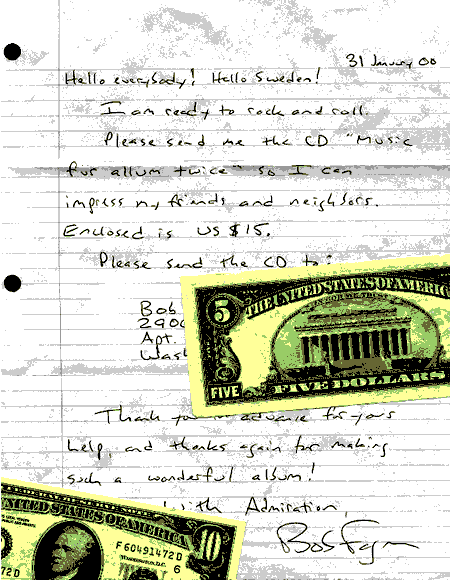 31 January 00
Hello everybody! Hello Sweden!
I am ready to rock and roll.
Please send me the CD "Music
for allum twice" so I can
impress my friends and neighbors.
Enclosed is US $15.
Please send the CD to:
Bob
290
Apt.
Wash
5
THE UNITED STATES OF AMERICA
IN GOD WE TRUST
FIVE
FIVE DOLLARS
Thank you in advance for your
help, and thanks again for making
such a wonderful album!
with Admiration,
Bob
UNITED STATES OF AMERICA
10
F60491472D
WASHINGTON, D.C.
6
72D